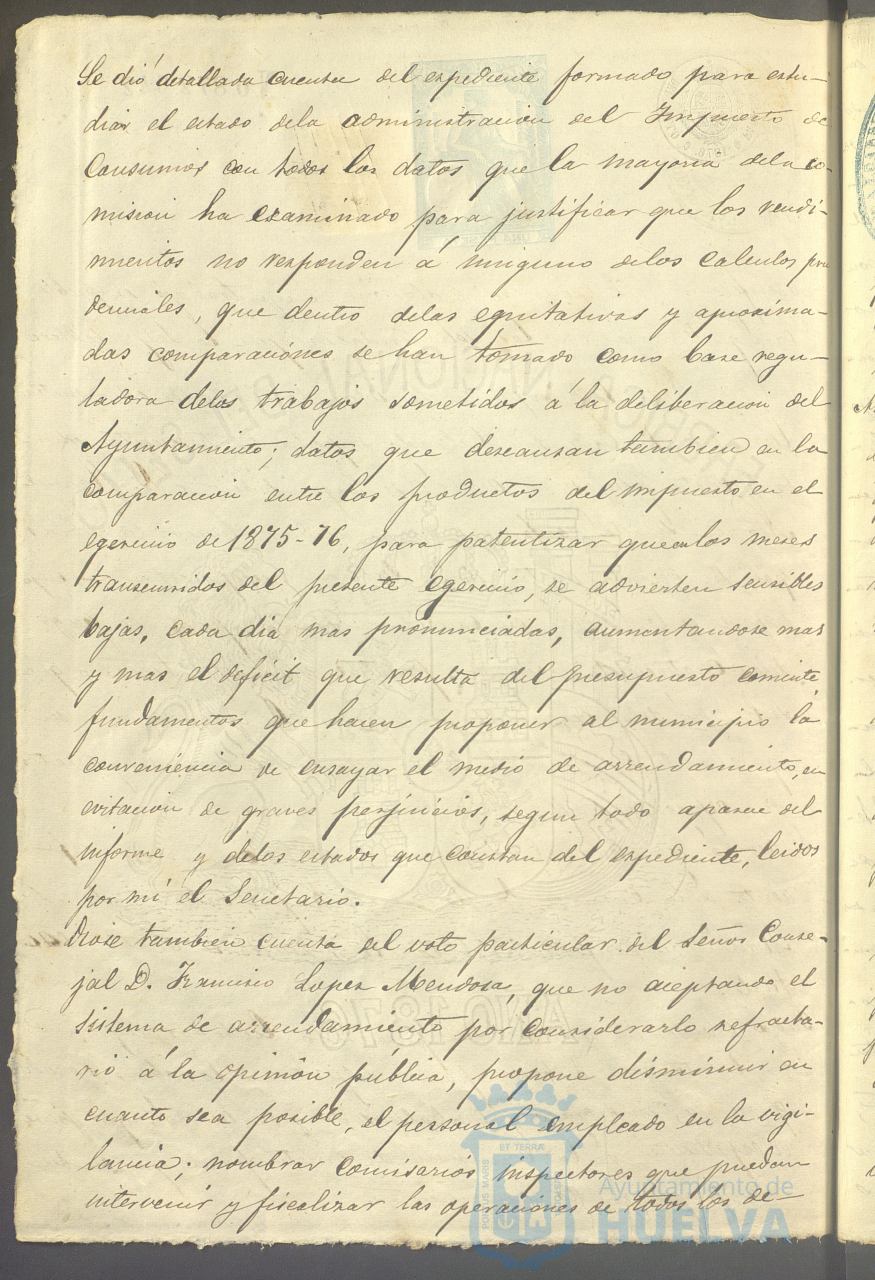 Se dió detallada cuenta del expediente formado para estu-
diar el estado dela administracion del Impuesto de
Consumos con todos los datos que la mayoria dela co-
mision ha examinado para justificar que los rendi-
mientos no responden á ninguno delos calculos pru
denciales, que dentro delas equitativas y aproxima-
das comparaciónes se han tomado como base regu-
ladora delos trabajos sometidos á la deliberacion del
Ayuntamiento; datos que descansan tambien en la
comparacion entre los productos del impuesto en el
egercicio de 1875-76, para patentizar que en los meses
transcurridos del presente egercicio, se advierten sensibles
bajas, cada dia mas pronunciadas, aumentandose mas
y mas el deficit que resulta del presupuesto corriente
fundamentos que hacen proponer al municipio la
conveniencia de ensayar el medio de arrendamiento, en
evitacion de graves perjuicios, segun todo aparece del
informe y delos estados que constan del expediente, leidos
por mi el Secretario.
Diose tambien cuenta del voto particular del Señor Conce-
jal D. Francisco Lopez Mendosa, que no aceptando el
sistema de arrendamiento por considerarlo refracta-
rio á la opinion pública, propone disminuir en
cuanto sea posible, el personal empleado en la vigi-
lancia; nombrar comisarios inspectores que puedan
intervenir y fiscalizar las operaciones de todos los de
AÑO 1876
PORTUS MARIS ET TERRÆ
Ayuntamiento de
HUELVA